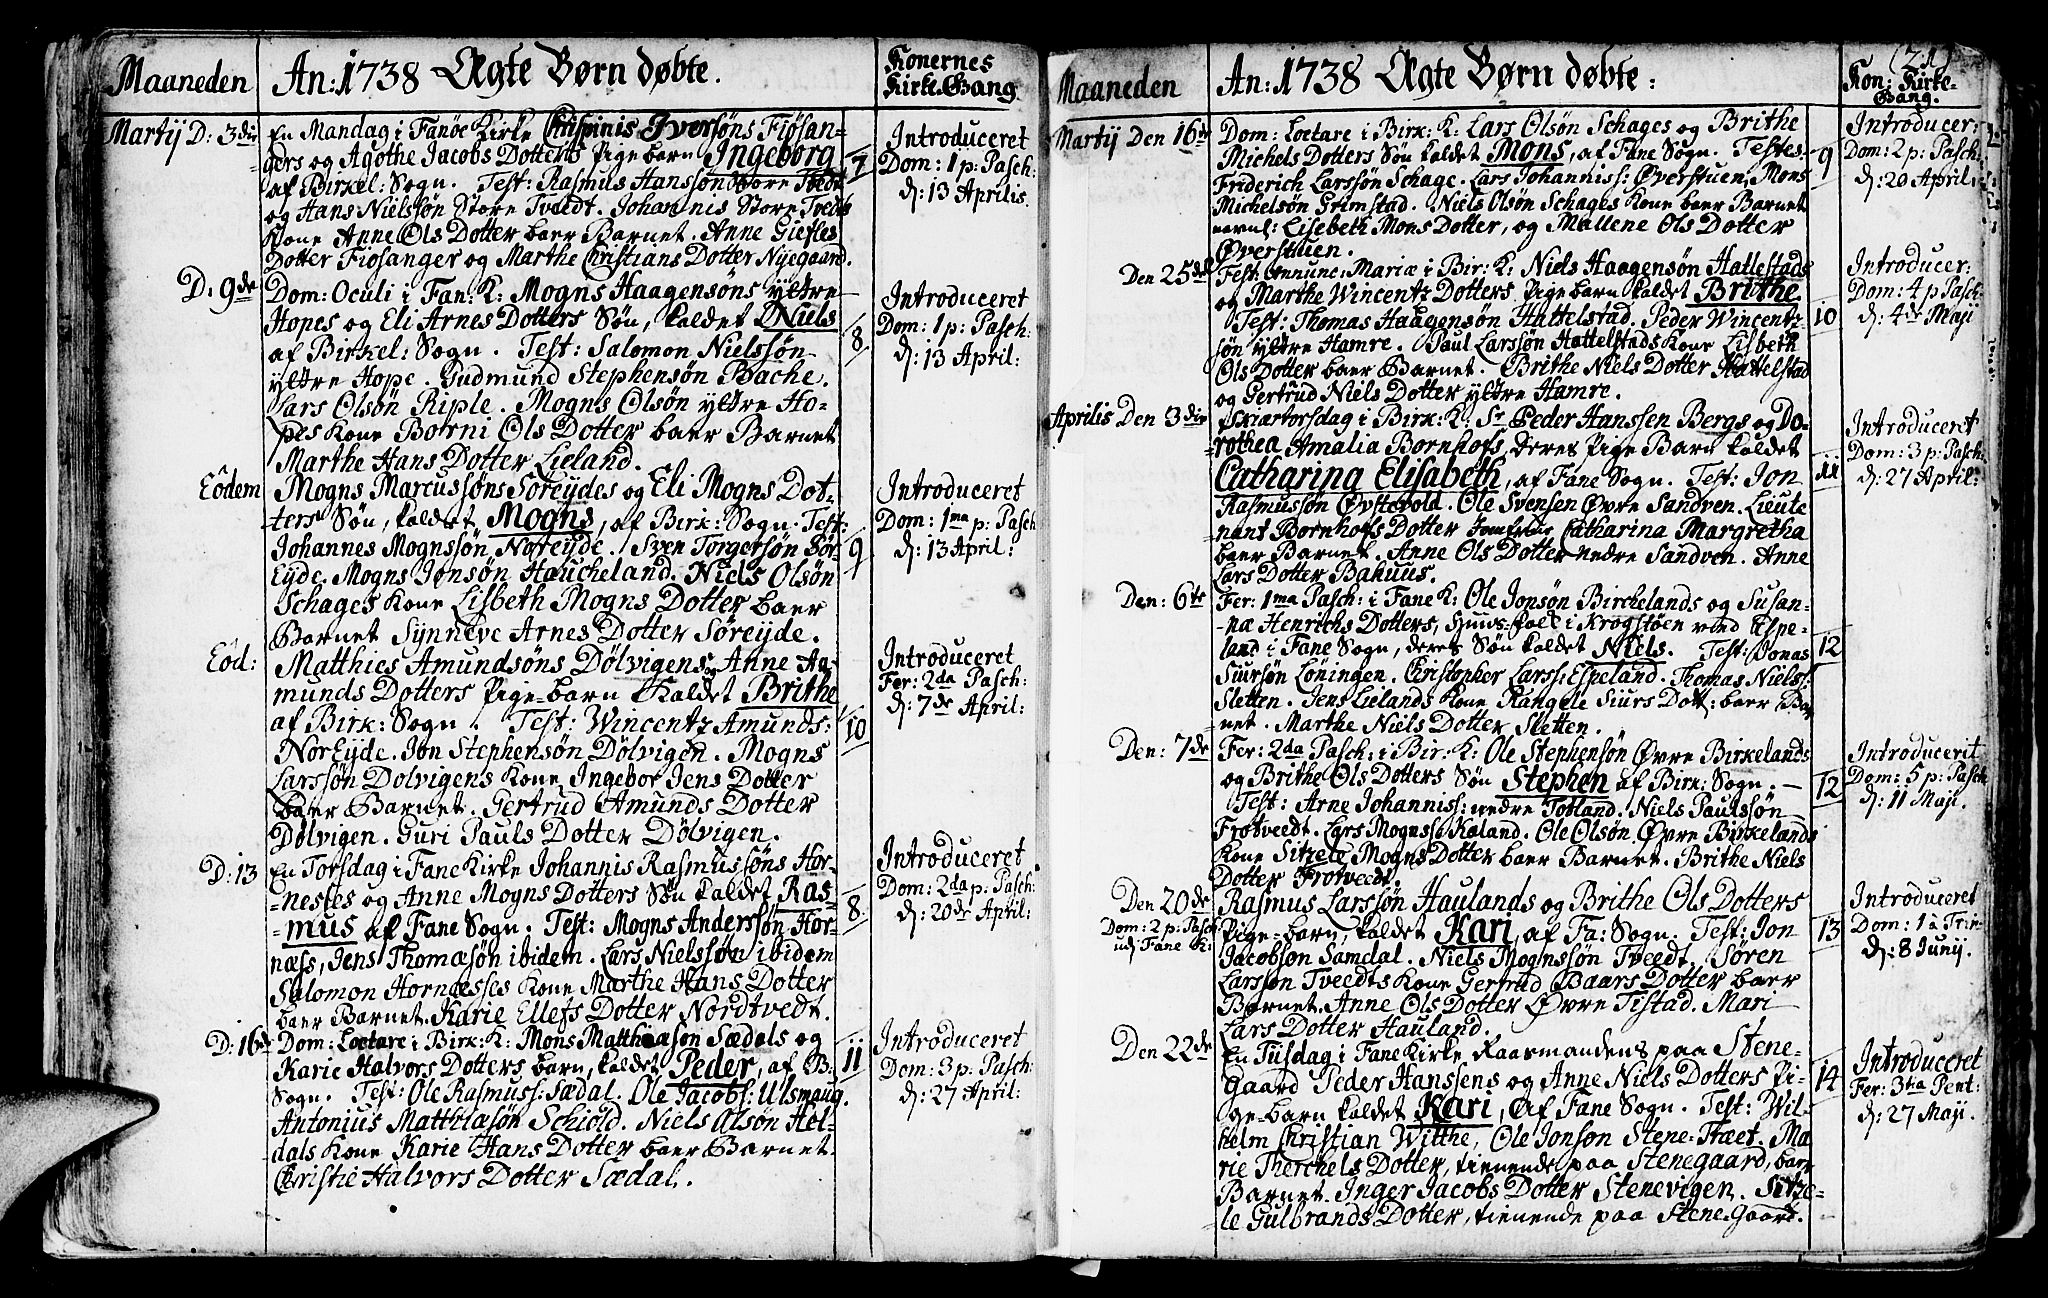 Maaneden
An: 1738 Ægte Børn døbte.
Konernes
Kirke-Gang
Martij D: 3die
En Mandag i Fanøe Kirke Chrispinis Iversøns Fiøsan-
gers og Agothe Jacobs Dotters Pige barn Ingeborg
af Birkel: Sogn. Test: Rasmus Hanssøn Store Tvedt
og Hans Nielssøn Store Tveedt. Johannis Store Tvedts
Kone Anne Ols Dotter baer Barnet. Anne Giefles
Dotter Fiøsanger og Marthe Christians Dotter Nyegaard.
7
Introduceret
Dom: 1 p: Pasch:
d: 13 Aprilis
D: 9de
Dom: Oculi i Fan: K: Mogns Haagensøns yttre
Hopes og Eli Arnes Dotters Søn, kaldet Niels
af Birkel: Sogn. Test: Salomon Nielssøn
yttre Hope. Gudmund Stephensøn Bache.
Lars Olsøn Riple. Mogns Olsøn yttre Ho-
pes Kone Borni Ols Dotter baer Barnet
Marthe Hans Dotter Lieland.
8
Introduceret
Dom: 1 p: Pasch:
d: 13 April:
Eôdem
Mogns Marcussøns Søreydes og Eli Mogns Dot-
ters Søn, kaldet Mogns, af Birk: Sogn. Test:
Johannes Mognssøn Noreyde. Sven Torgersøn Sør-
Eyde. Mogns Jonsøn Haucheland. Niels Olsøn
Schages Kone Lisbeth Mogns Dotter baer
Barnet Synneve Arnes Dotter Søreyde.
9
Introduceret
Dom: 1ma p: Pasch
d: 13 April:
Eôd:
Matthies Amundsøns Dölvigens og Anne Aa-
munds Dotters Pige-barn Kaldet Brithe
af Birk: Sogn. Test: Wincentz Amunds:
NorEyde. Jon Stephensøn Dölvigen. Mogns
Larssøn Dolvigens Kone Ingebor Jens Dotter
baer Barnet. Gertrud Amunds Dotter
Dölvigen. Guri Pauls Dotter Dölvigen.
10
Introduceret
Fer: 2da Pasch:
d: 7de April:
D: 13
En Torsdag i Fane Kirke Johannis Rasmussøns Hor-
neses og Anne Mogns Dotters Søn kaldet Ras-
mus af Fane Sogn. Test: Mogns Anderssøn Hor-
næss, Jens Thomæsøn ibidem. Lars Nielssøn ibidem
Salomon Hornæsses Kone Marthe Hans Dotter
baer Barnet. Karie Ellefs Dotter Nordtvedt.
8.
Introduceret
Dom: 2da p: Pasch:
d: 20de April:
D: 16de
Dom: Loetare i Birk: K: Mons Matthiasøn Sædals og
Karie Halvors Dotters barn, kaldet Peder, af B:
Sogn. Test: Ole Rasmuss: Sædal. Ole Jacobs: Ulsmaug.
Antonius Matthiæsøn Schiold. Niels Olsøn Hel-
dals Kone Karie Hans Dotter baer Barnet
Christie Halvors Dotter Sædal.
11
Introduceret
Dom: 3 p: Pasch:
d: 27 April:
(21)
Maaneden
An: 1738 Ægte Børn døbte:
Kon: Kirke-
Gang.
Martij Den 16de
Dom: Loetare i Birk: K: Lars Olsøn Schages og Brithe
Michels Dotters Søn kaldet Mons, af Fane Sogn. Testes:
Friderich Larssøn Schage. Lars Johanniss: Øverstuen, Mons
Michelsøn Grimstad. Niels Olsøn Schages Kone baer Barnet
navnl: Lisebeth Mons Dotter, og Mallene Ols Dotter
Øverstuen.
9
Introducer:
Dom: 2 p: Pasch:
d: 20 April:
Den 25de
Fest: Annunc: Mariæ i Bir: K: Niels Haagensøn Hattestads
og Marthe Wincentz Dotters Pige barn kaldet Brithe
Test: Thomas Haagensøn Hattelstad. Peder Wincentz-
søn yttre Hamre. Paul Larssøn Hattelstads Kone Lisbeth
Ols Dotter baer Barnet. Brithe Niels Dotter Hattelstad
og Gertrud Niels Dotter yttre Hamre.
10
Introducer:
Dom: 4 p Pasch:
d: 4de Maji
Aprilis Den 3die
Skiærtorsdag i Birk: K: Sr Peder Hanssen Bergs og Do-
rothea Amalia Bornhofs, deres Pige Barn kaldet
Catharina Elisabeth, af Fane Sogn. Test: Jon
Rasmussøn Øvstevold. Ole Svensen Øvre Sandven. Lieute
nant Bornhofs Dotter Jomfrue Catharina Margretha
baer Barnet. Anne Ols Dotter nedre Sandven. Anne
Lars Dotter Bakuus.
11
Introduceret
Dom: 3 p: Pasch:
d: 27 April:
Den: 6te
Fer: 1ma Pasch: i Fane K: Ole Jonsøn Birchelands og Susan-
næ Henrichs Dotters, Huus-folk i Krogstøen ved Espe-
land i Fane Sogn, deres Søn kaldet Niels. Test: Jonas
Siursøn Löningen. Christopher Larss: Espeland. Thomas Niels:
Sletten. Jens Lielands Kone Rangele Siurs Dott: baer Bar
net. Marthe Niels Dotter Sletten.
12
Den: 7de
Fer: 2da Pasch: i Bir: K: Ole Stephensøn Øvre Birkelands
og Brithe Ols Dotters Søn Stephen af Birk: Sogn:
Test: Arne Johanniss: nedre Totland. Niels Paulssøn
Frotveedt. Lars Mognss: Kaland. Ole Olsøn Øvre Birkelands
Kone Sitzele Mogns Dotter baer Barnet. Brithe Niels
Dotter Frotveedt
12
Introducerit
Dom: 5 p: Pasch
d: 11 Maji.
Den 20de
Dom: 2 p: Pasch
udj Fane K:
Rasmus Larssøn Haulands og Brithe Ols Dotters
Pige-barn, kaldet Kari, af Fa: Sogn. Test: Jon
Jacobsøn Samdal. Niels Mognssøn Tveedt. Søren
Larssøn Tveedts Kone Gertrud Baars Dotter baer
Barnet. Anne Ols Dotter Øvre Tistad. Mari
Lars Dotter Hauland.
13
Introduceret
Dom: 1 à Trin:
d: 8 Junij.
Den 22de
En Tiisdag i Fane Kirke Raarmandens paa Stene-
Gaard Peder Hanssens og Anne Niels Dotters Pi-
ge-barn kaldet Kari, af Fane Sogn. Test: Wil-
helm Christian Witthe, Ole Jonsøn Stene-Træet. Ma
rie Therchels Dotter, tienende paa Stenegaard, baer
Barnet. Inger Jacobs Dotter Stenevigen. Sitze-
le Gulbrands Dotter, tienende paa Stene-Gaard.
14
Introduceret
Fer: 3tia Pent:
d: 27 Maji: